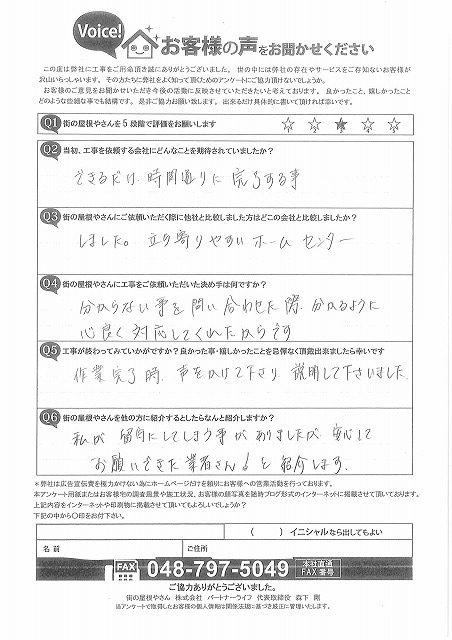 Voice!
お客様の声をお聞かせください
この度は弊社に工事をご用命頂き誠にありがとうございました。世の中には弊社の存在やサービスをご存知ないお客様が
沢山いらっしゃいます。その方たちに弊社をよく知って頂くためのアンケートにご協力頂けないでしょうか。
お客様のご意見をお聞かせいただき今後の活動に反映させていただきたいと考えております。良かったこと、嬉しかったこと
どのような些細な事でも結構です。是非ご協力お願い致します。出来るだけ具体的に書いて頂ければ幸いです。
Q1 街の屋根やさんを5段階で評価をお願いします ☆ ☆ ★ ☆ ☆
Q2 当初、工事を依頼する会社にどんなことを期待されていましたか?
できるだけ、時間通りに完了する事
Q3 街の屋根やさんにご依頼いただく際に他社と比較しました方はどこの会社と比較しましたか?
しました。立ち寄りやすいホームセンター
Q4 街の屋根やさんに工事をご依頼いただいた決め手は何ですか?
分からない事を問い合わせた際、分かるように
心良く対応してくれたからです
Q5 工事が終わってみていかがですか?良かった事・嬉しかったことを忌憚なく頂戴出来ましたら幸いです
作業完了時、声をかけて下さり、説明して下さいました
Q6 街の屋根やさんを他の方に紹介するとしたらなんと紹介しますか?
私が留守にしてしまう事がありましたが、安心して
お願いできた業者さん!と紹介します。
*弊社は広告宣伝費を極力かけない為にホームページだけを頼りにお客様への営業活動を行っております。
本アンケート用紙またはお客様宅の調査風景や施工状況、お客様の顔写真を随時ブログ形式のインターネットに掲載させて頂いております。
上記内容をインターネットや印刷物に掲載させて頂いてもよろしいでしょうか?
下記の中から〇印をお付下さい。
( ) イニシャルなら出してもよい
名前 ご住所
FAX 048-797-5049 本社直通 FAX番号
ご協力ありがとうございました。
街の屋根やさん 株式会社 パートナーライフ 代表取締役 森下 剛
当アンケートで取得したお客様の個人情報は関係法規に基づき厳正に管理いたします。